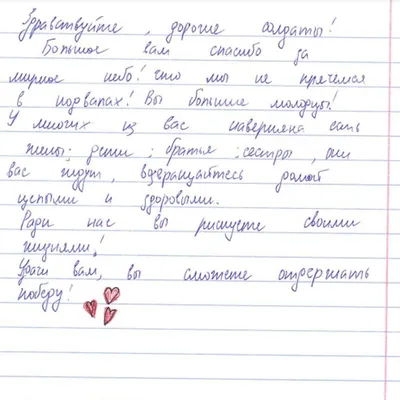 Здравствуйте, дорогие солдаты!
Большое вам спасибо за
мирное небо! что мы не прячемся
в подвалах! Вы большие молодцы!
У многих из вас наверняна есть
жены; дети; братья; сестры, они
вас ждут, вдзвращайтесь домой
целыми и здоровыми.
Ради нас вы рискуете своими
жизнями!
Удачи вам, вы сможете отдержать
победу!